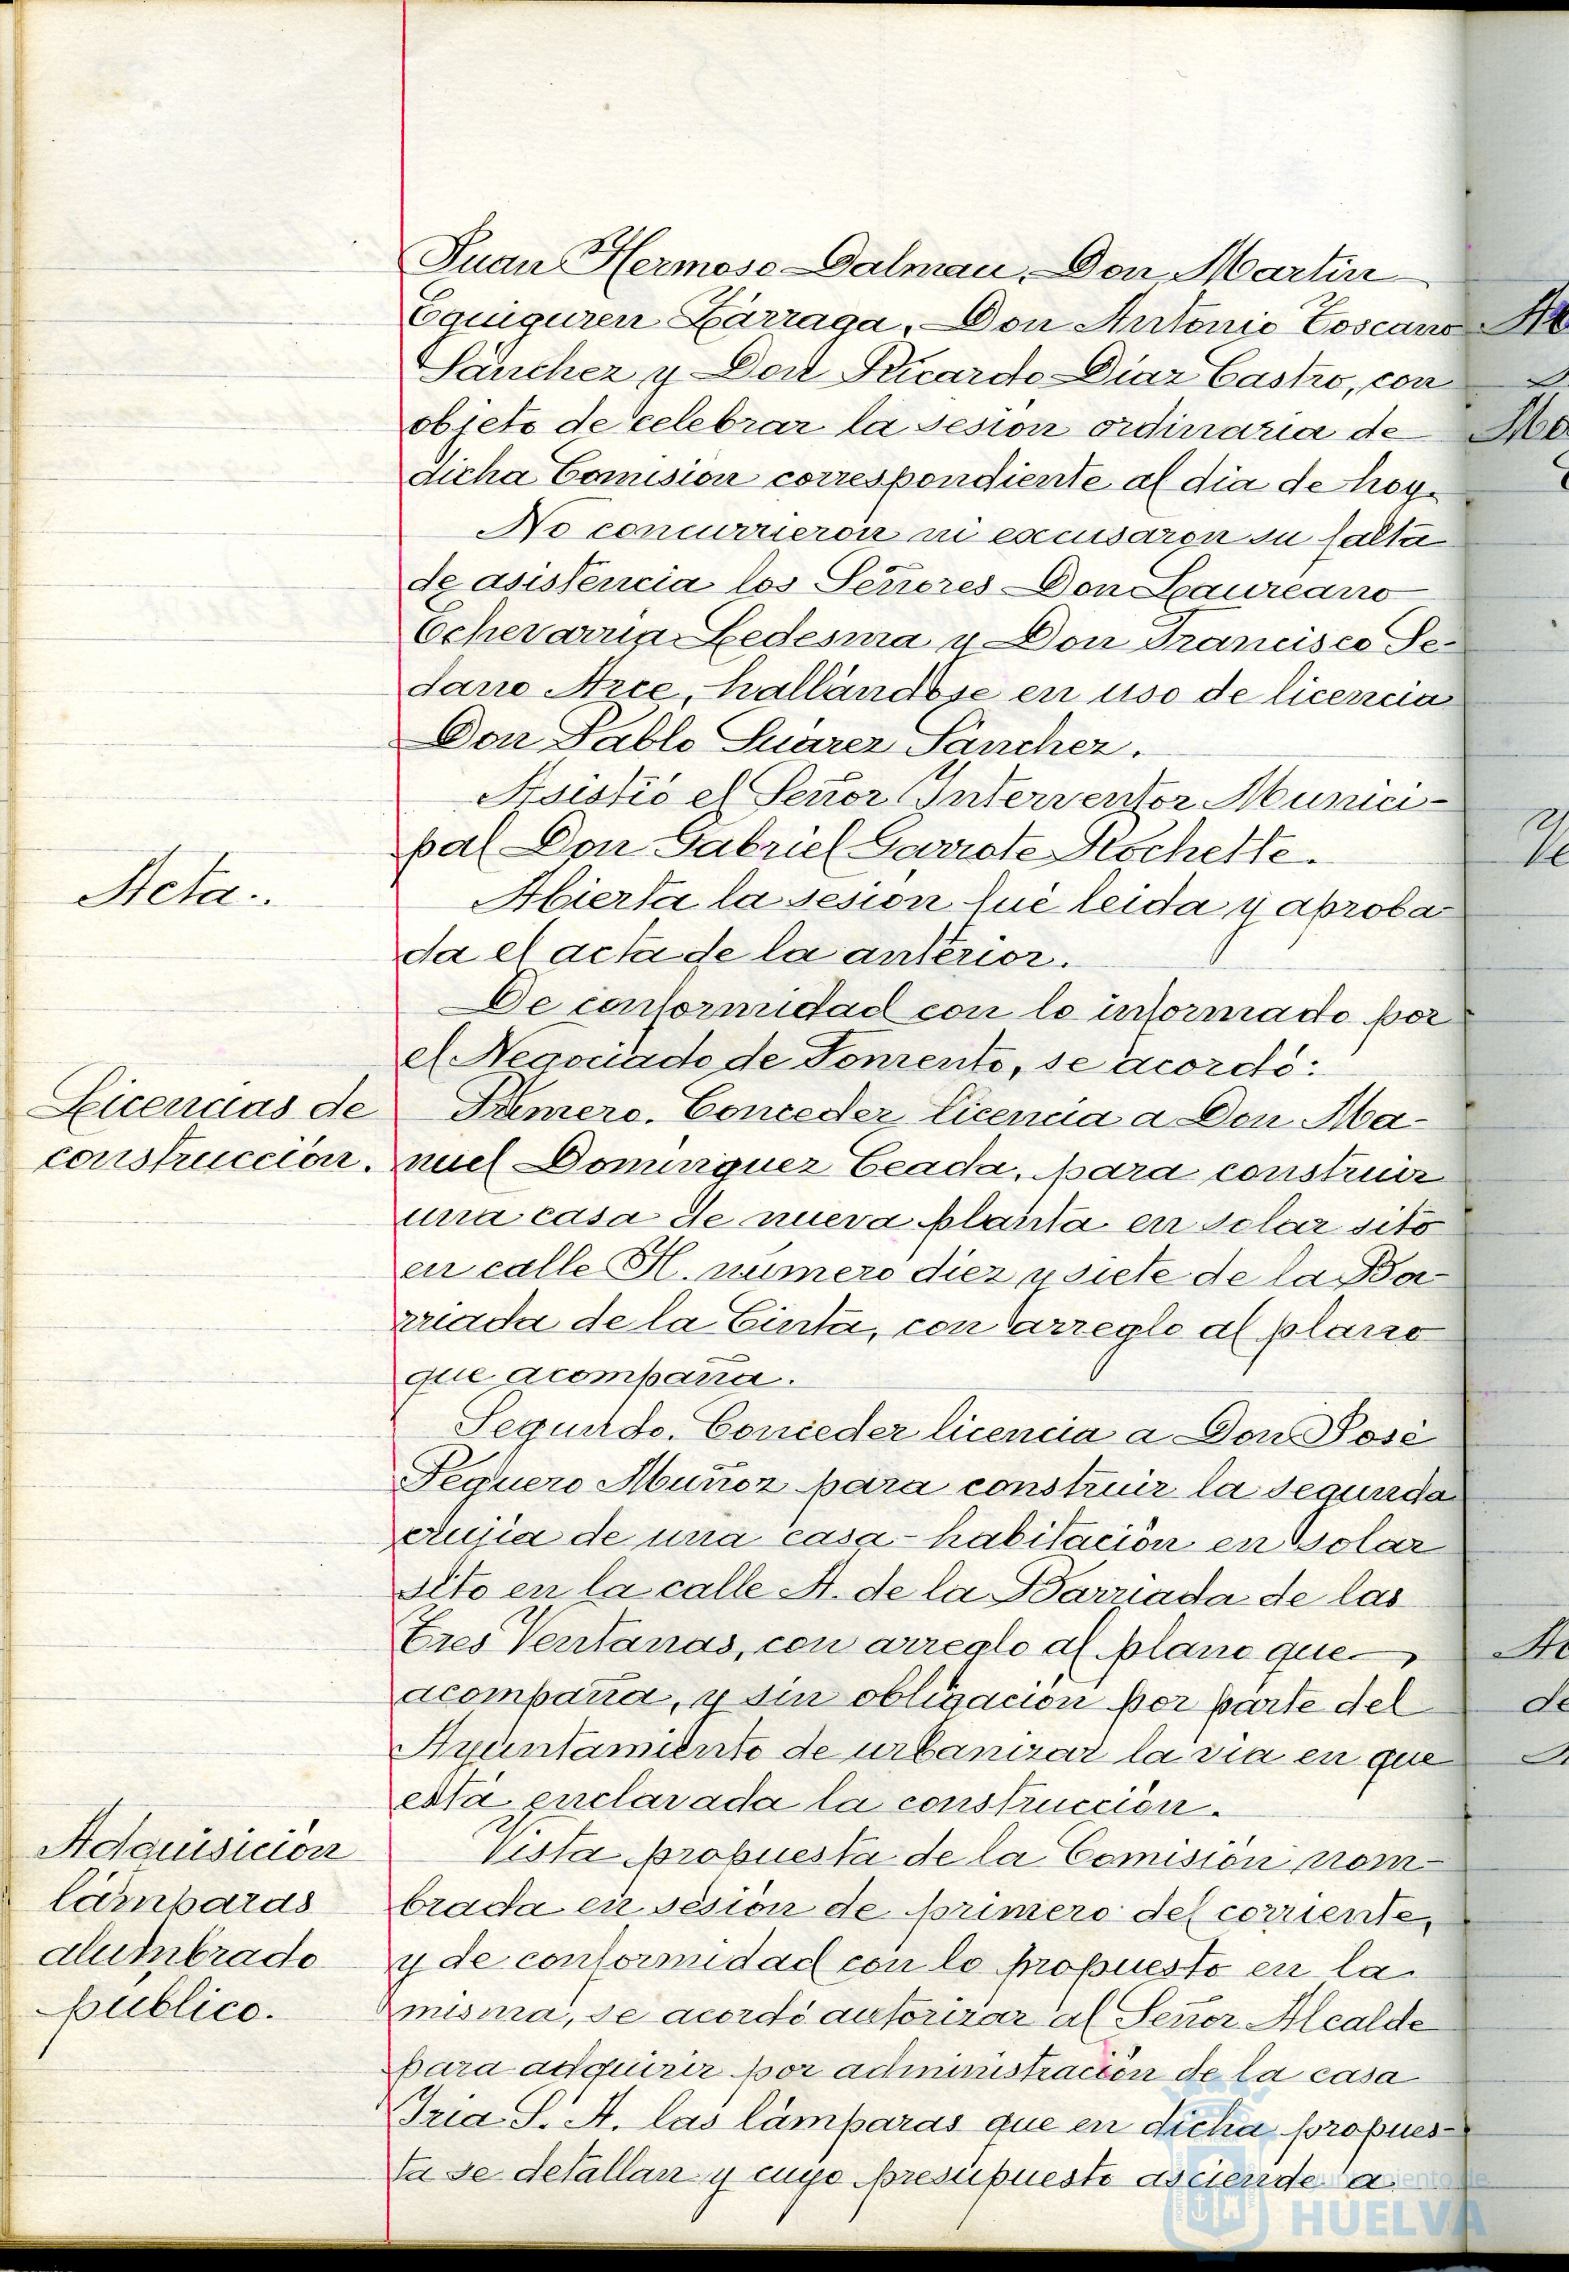 Juan Hermoso Dalmau, Don Martin
Eguiguren Lárraga, Don Antonio Toscano
Sánchez y Don Ricardo Díaz Castro, con
objeto de celebrar la sesión ordinaria de
dicha Comisión correspondiente al día de hoy.
No concurrieron ni excusaron su falta
de asistencia los Señores Don Laureano
Echevarría Ledesma y Don Francisco Se-
dano Arce, hallándose en uso de licencia
Don Pablo Suárez Sánchez.
Asistió el Señor Interventor Munici-
pal Don Gabriel Garrote Rochette.
Acta..
Abierta la sesión fué leida y aproba
da el acta de la anterior.
De conformidad con lo informado por
el Negociado de Fomento, se acordó:
Licencias de
construcción.
Primero. Conceder licencia a Don Ma-
nuel Dominguez Ceada, para construir
una casa de nueva planta en solar sito
en calle H. número diez y siete de la Ba-
rriada de la Cinta, con arreglo al plano
que acompaña.
Segundo. Conceder licencia a Don José
Peguero Muñoz para construir la segunda
crujía de una casa-habitación en solar
sito en la calle A. de la Barriada de las
Tres Ventanas, con arreglo al plano que
acompaña, y sin obligación por parte del
Ayuntamiento de urbanizar la vía en que
está enclavada la construcción.
Adquisición
lámparas
alumbrado
público.
Vista propuesta de la Comisión nom-
brada en sesión de primero del corriente,
y de conformidad con lo propuesto en la
misma, se acordó autorizar al Señor Alcalde
para adquirir por administración de la casa
Iria S. A. las lámparas que en dicha propues-
ta se detallan y cuyo presupuesto asciende a
Ayuntamiento de
HUELVA